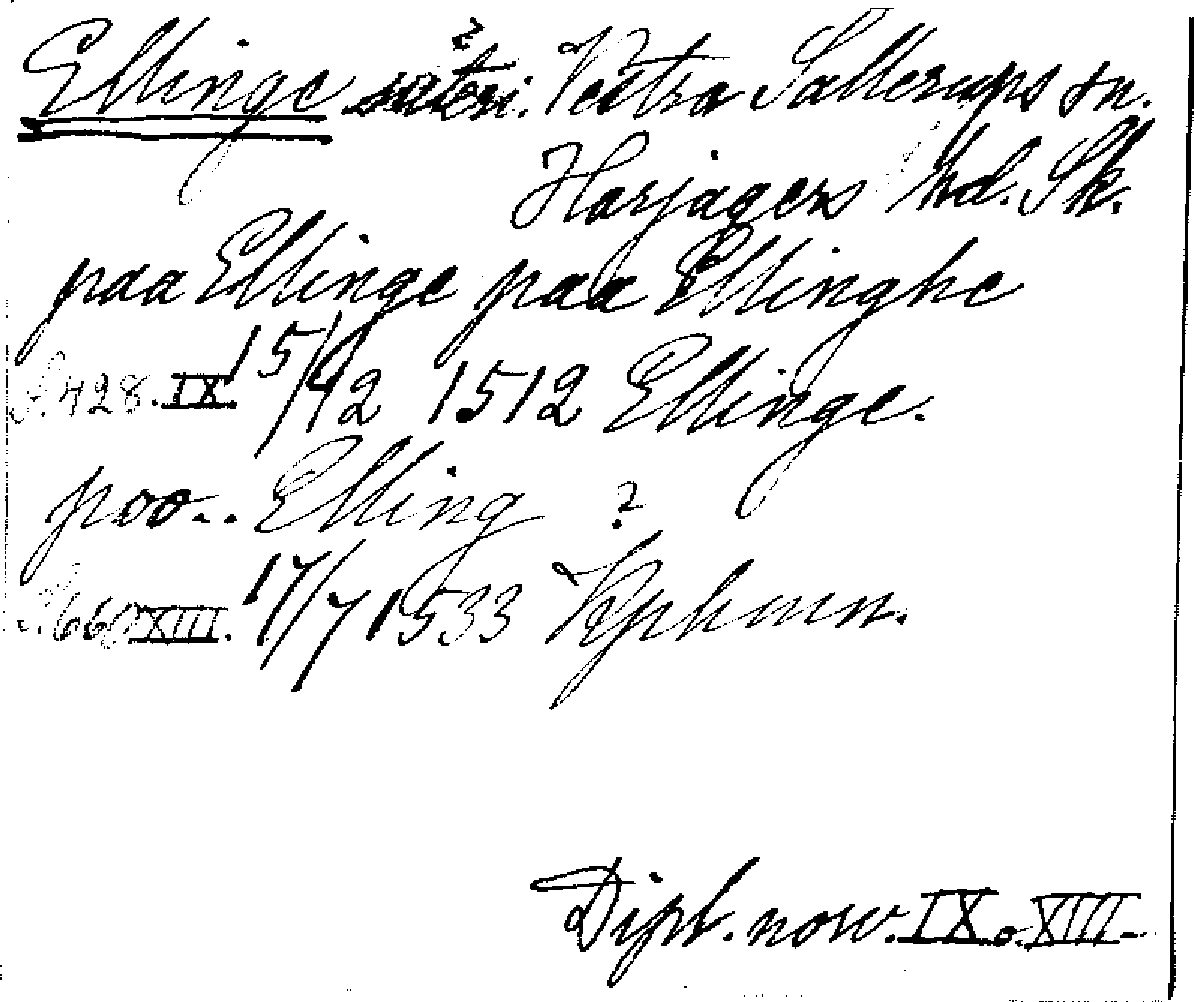 Ellinge säteri. Vestra Sallerups sn.
Harjagers hd. Sk.
paa Ellinge paa Ellinghe
S. 428. IX. 15/12 1512 Ellinge.
poo.. Elling ?
S. 660 XIII. 17/7 1533 Kphmn.
Dipl. norv. IX. o. XIII.